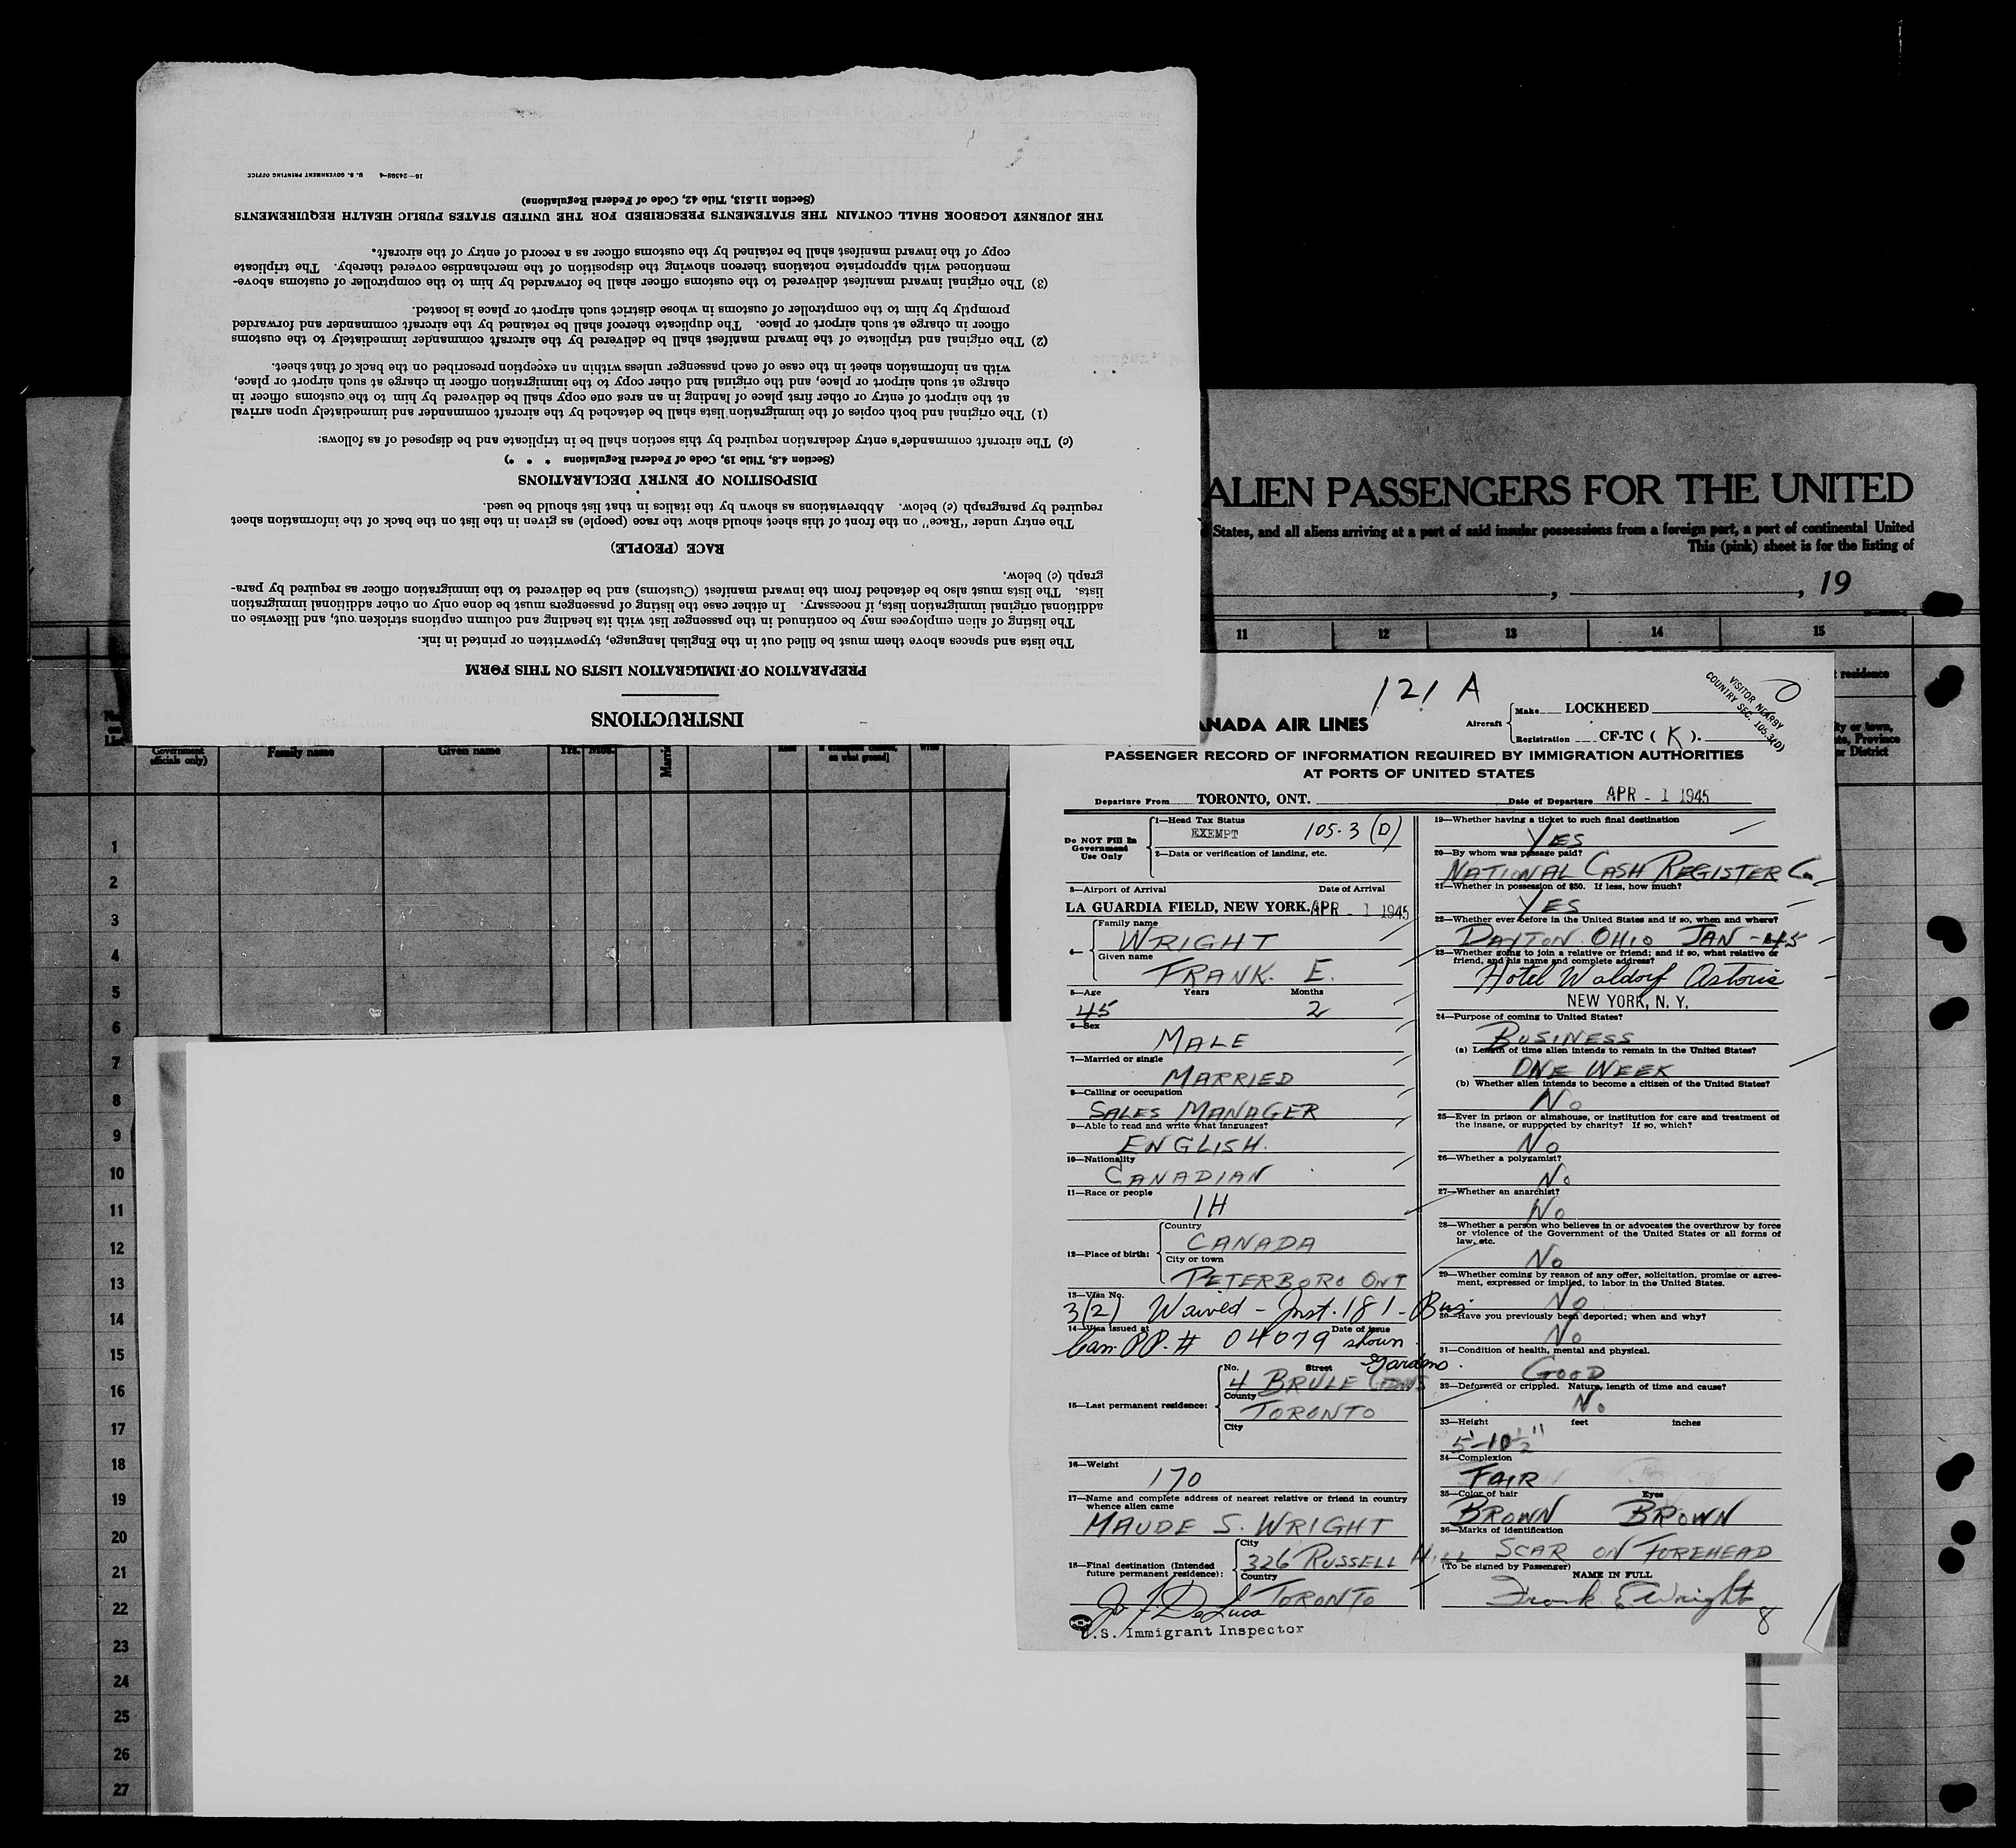 INSTRUCTIONS
PREPARATION OF IMMIGRATION LISTS ON THIS FORM
The lists and spaces above them must be filled out in the English language, typewritten or printed in ink.
The listing of alien employees may be continued in the passenger list with its heading and column captions stricken out, and likewise on
additional original immigration lists, if necessary. In either case the listing of passengers must be done only on other additional immigration
lists. The lists must also be detached from the inward manifest (Customs) and be delivered to the immigration officer as required by para-
graph (c) below.
RACE (PEOPLE)
The entry under "Race" on the front of this sheet should show the race (people) as given in the list on the back of the information sheet
required by paragraph (c) below. Abbreviations as shown by the italics in that list should be used.
DISPOSITION OF ENTRY DECLARATIONS
(Section 4.8, Title 19, Code of Federal Regulations * * *)
(c) The aircraft commander's entry declaration required by this section shall be in triplicate and be disposed of as follows:
(1) The original and both copies of the immigration lists shall be detached by the aircraft commander and immediately upon arrival
at the airport of entry or other first place of landing in an area one copy shall be delivered by him to the customs officer in
charge at such airport or place, and the original and other copy to the immigration officer in charge at such airport or place,
with an information sheet in the case of each passenger unless within an exception prescribed on the back of that sheet.
(2) The original and triplicate of the inward manifest shall be delivered by the aircraft commander immediately to the customs
officer in charge at such airport or place. The duplicate thereof shall be retained by the aircraft commander and forwarded
promptly by him to the comptroller of customs in whose district such airport or place is located.
(3) The original inward manifest delivered to the customs officer shall be forwarded by him to the comptroller of customs above-
mentioned with appropriate notations thereon showing the disposition of the merchandise covered thereby. The triplicate
copy of the inward manifest shall be retained by the customs officer as a record of entry of the aircraft.
THE JOURNEY LOGBOOK SHALL CONTAIN THE STATEMENTS PRESCRIBED FOR THE UNITED STATES PUBLIC HEALTH REQUIREMENTS
(Section 11.513, Title 42, Code of Federal Regulations)
16—24598-4 U. S. GOVERNMENT PRINTING OFFICE
ALIEN PASSENGERS FOR THE UNITED
States, and all aliens arriving at a port of said insular possessions from a foreign port, a port of continental United
This (pink) sheet is for the listing of
, , 19
11 12 13 14 15
residence
Government officials only)
Family name
Given name
Yrs. Mos.
on what ground]
1
2
3
4
5
6
7
8
9
10
11
12
13
14
15
16
17
18
19
20
21
22
23
24
25
26
27
121 A
VISITOR NEARBY
COUNTRY SEC. 105.3(D)
ANADA AIR LINES
Aircraft
Make LOCKHEED
Registration CF-TC ( K ).
PASSENGER RECORD OF INFORMATION REQUIRED BY IMMIGRATION AUTHORITIES
AT PORTS OF UNITED STATES
Departure From TORONTO, ONT. Date of Departure APR - 1 1945
Do NOT Fill In
Government
Use Only
1—Head Tax Status
EXEMPT 105.3 (D)
2—Data or verification of landing, etc.
3—Airport of Arrival Date of Arrival
LA GUARDIA FIELD, NEW YORK. APR - 1 1945
4— Family name
WRIGHT
Given name
FRANK. E.
5—Age Years Months
45 2
6—Sex
MALE
7—Married or single
MARRIED
8—Calling or occupation
SALES MANAGER
9—Able to read and write what languages?
ENGLISH.
10—Nationality
CANADIAN
11—Race or people
1H
12—Place of birth:
Country
CANADA
City or town
PETERBORO ONT
13—Visa No.
3(2) Waived - Inst. 181 - Bus
14—Visa issued at Date of issue
Can. PP. # 04079 shown.
15—Last permanent residence:
No. Street Gardens.
4 BRULE GDNS
County
TORONTO
City
16—Weight
170
17—Name and complete address of nearest relative or friend in country
whence alien came
MAUDE S. WRIGHT
18—Final destination (Intended
future permanent residence):
City
326 RUSSELL HILL
Country
TORONTO
Jo J. DeLuca
U.S. Immigrant Inspector
19—Whether having a ticket to such final destination
YES
20—By whom was passage paid?
NATIONAL CASH REGISTER Co
21—Whether in possession of $50. If less, how much?
YES
22—Whether ever before in the United States and if so, when and where?
DAYTON OHIO JAN - 45
23—Whether going to join a relative or friend; and if so, what relative or
friend, and his name and complete address?
Hotel Waldorf Astoria
NEW YORK, N. Y.
24—Purpose of coming to United States?
BUSINESS
(a) Length of time alien intends to remain in the United States?
ONE WEEK
(b) Whether alien intends to become a citizen of the United States?
No
25—Ever in prison or almshouse, or institution for care and treatment of
the insane, or supported by charity? If so, which?
No
26—Whether a polygamist?
No
27—Whether an anarchist?
No
28—Whether a person who believes in or advocates the overthrow by force
or violence of the Government of the United States or all forms of
law, etc.
No
29—Whether coming by reason of any offer, solicitation, promise or agree-
ment, expressed or implied, to labor in the United States.
No
30—Have you previously been deported; when and why?
No
31—Condition of health, mental and physical.
GOOD
32—Deformed or crippled. Nature, length of time and cause?
No
33—Height feet inches
5'-10½"
34—Complexion
FAIR
35—Color of hair Eyes
BROWN BROWN
36—Marks of identification
SCAR ON FOREHEAD
(To be signed by Passenger)
NAME IN FULL
Frank E Wright
8